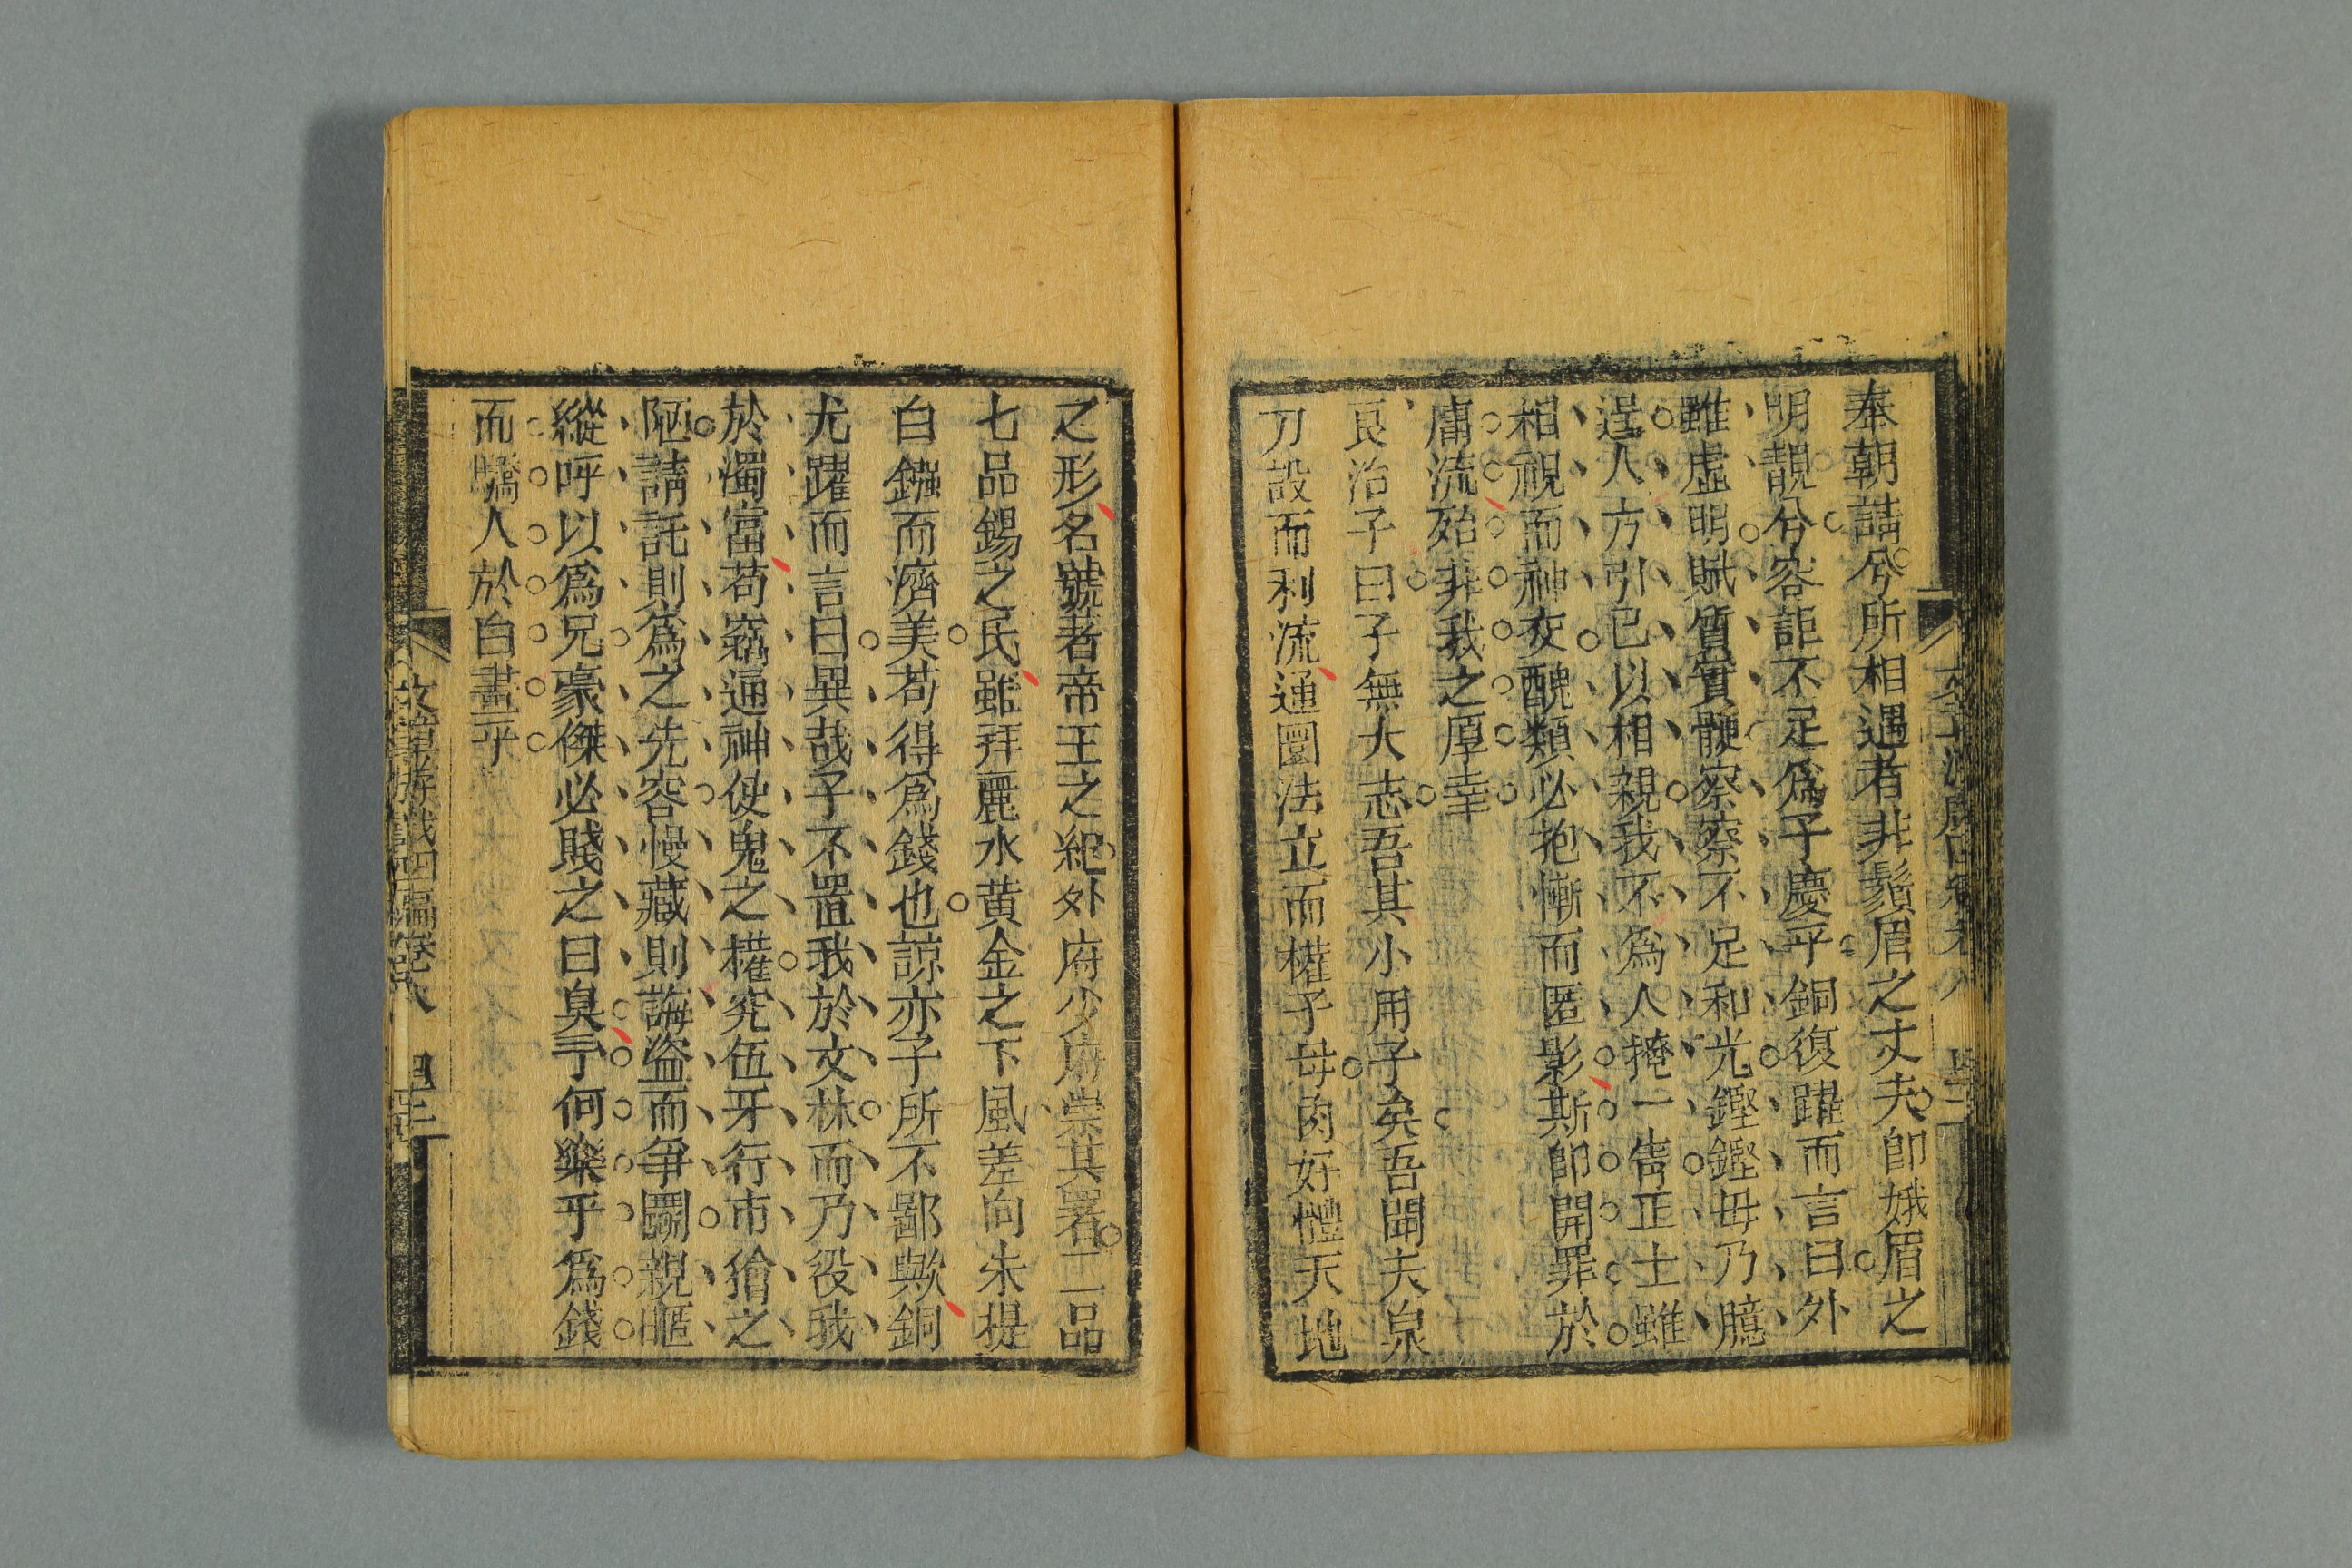 奉朝請兮所相遇者非鬚眉之丈夫卽娥眉之
明靚兮容詎不足爲子慶乎銅復躍而言曰外
雖虛明賦質實骾察察不足和光鏗鏗毋乃臆
逞人方引已以相親我不爲人掩一眚正士雖
相視而神交醜類必抱慚而匿影斯卽開罪於
庸流殆非我之厚幸
良治子曰子無大志吾其小用子矣吾聞夫泉
刀設而利流通圜法立而權子母肉好體天地
之形名號者帝王之紀外府少府崇其署二品
七品錫之民雖拜麗水黃金之下風差向朱提
白鏹而濟美苟得爲錢也諒亦子所不鄙歟銅
尤躍而言曰異哉子不置我於文林而乃役我
於濁富苟窮通神使鬼之權究伍牙行市獪之
陋請託則爲之先容慢藏則誨盜而爭鬬親暱
縱呼以爲兄豪傑必賤之曰臭予何樂乎爲錢
而驕人於白晝乎
文章游戲四編卷八